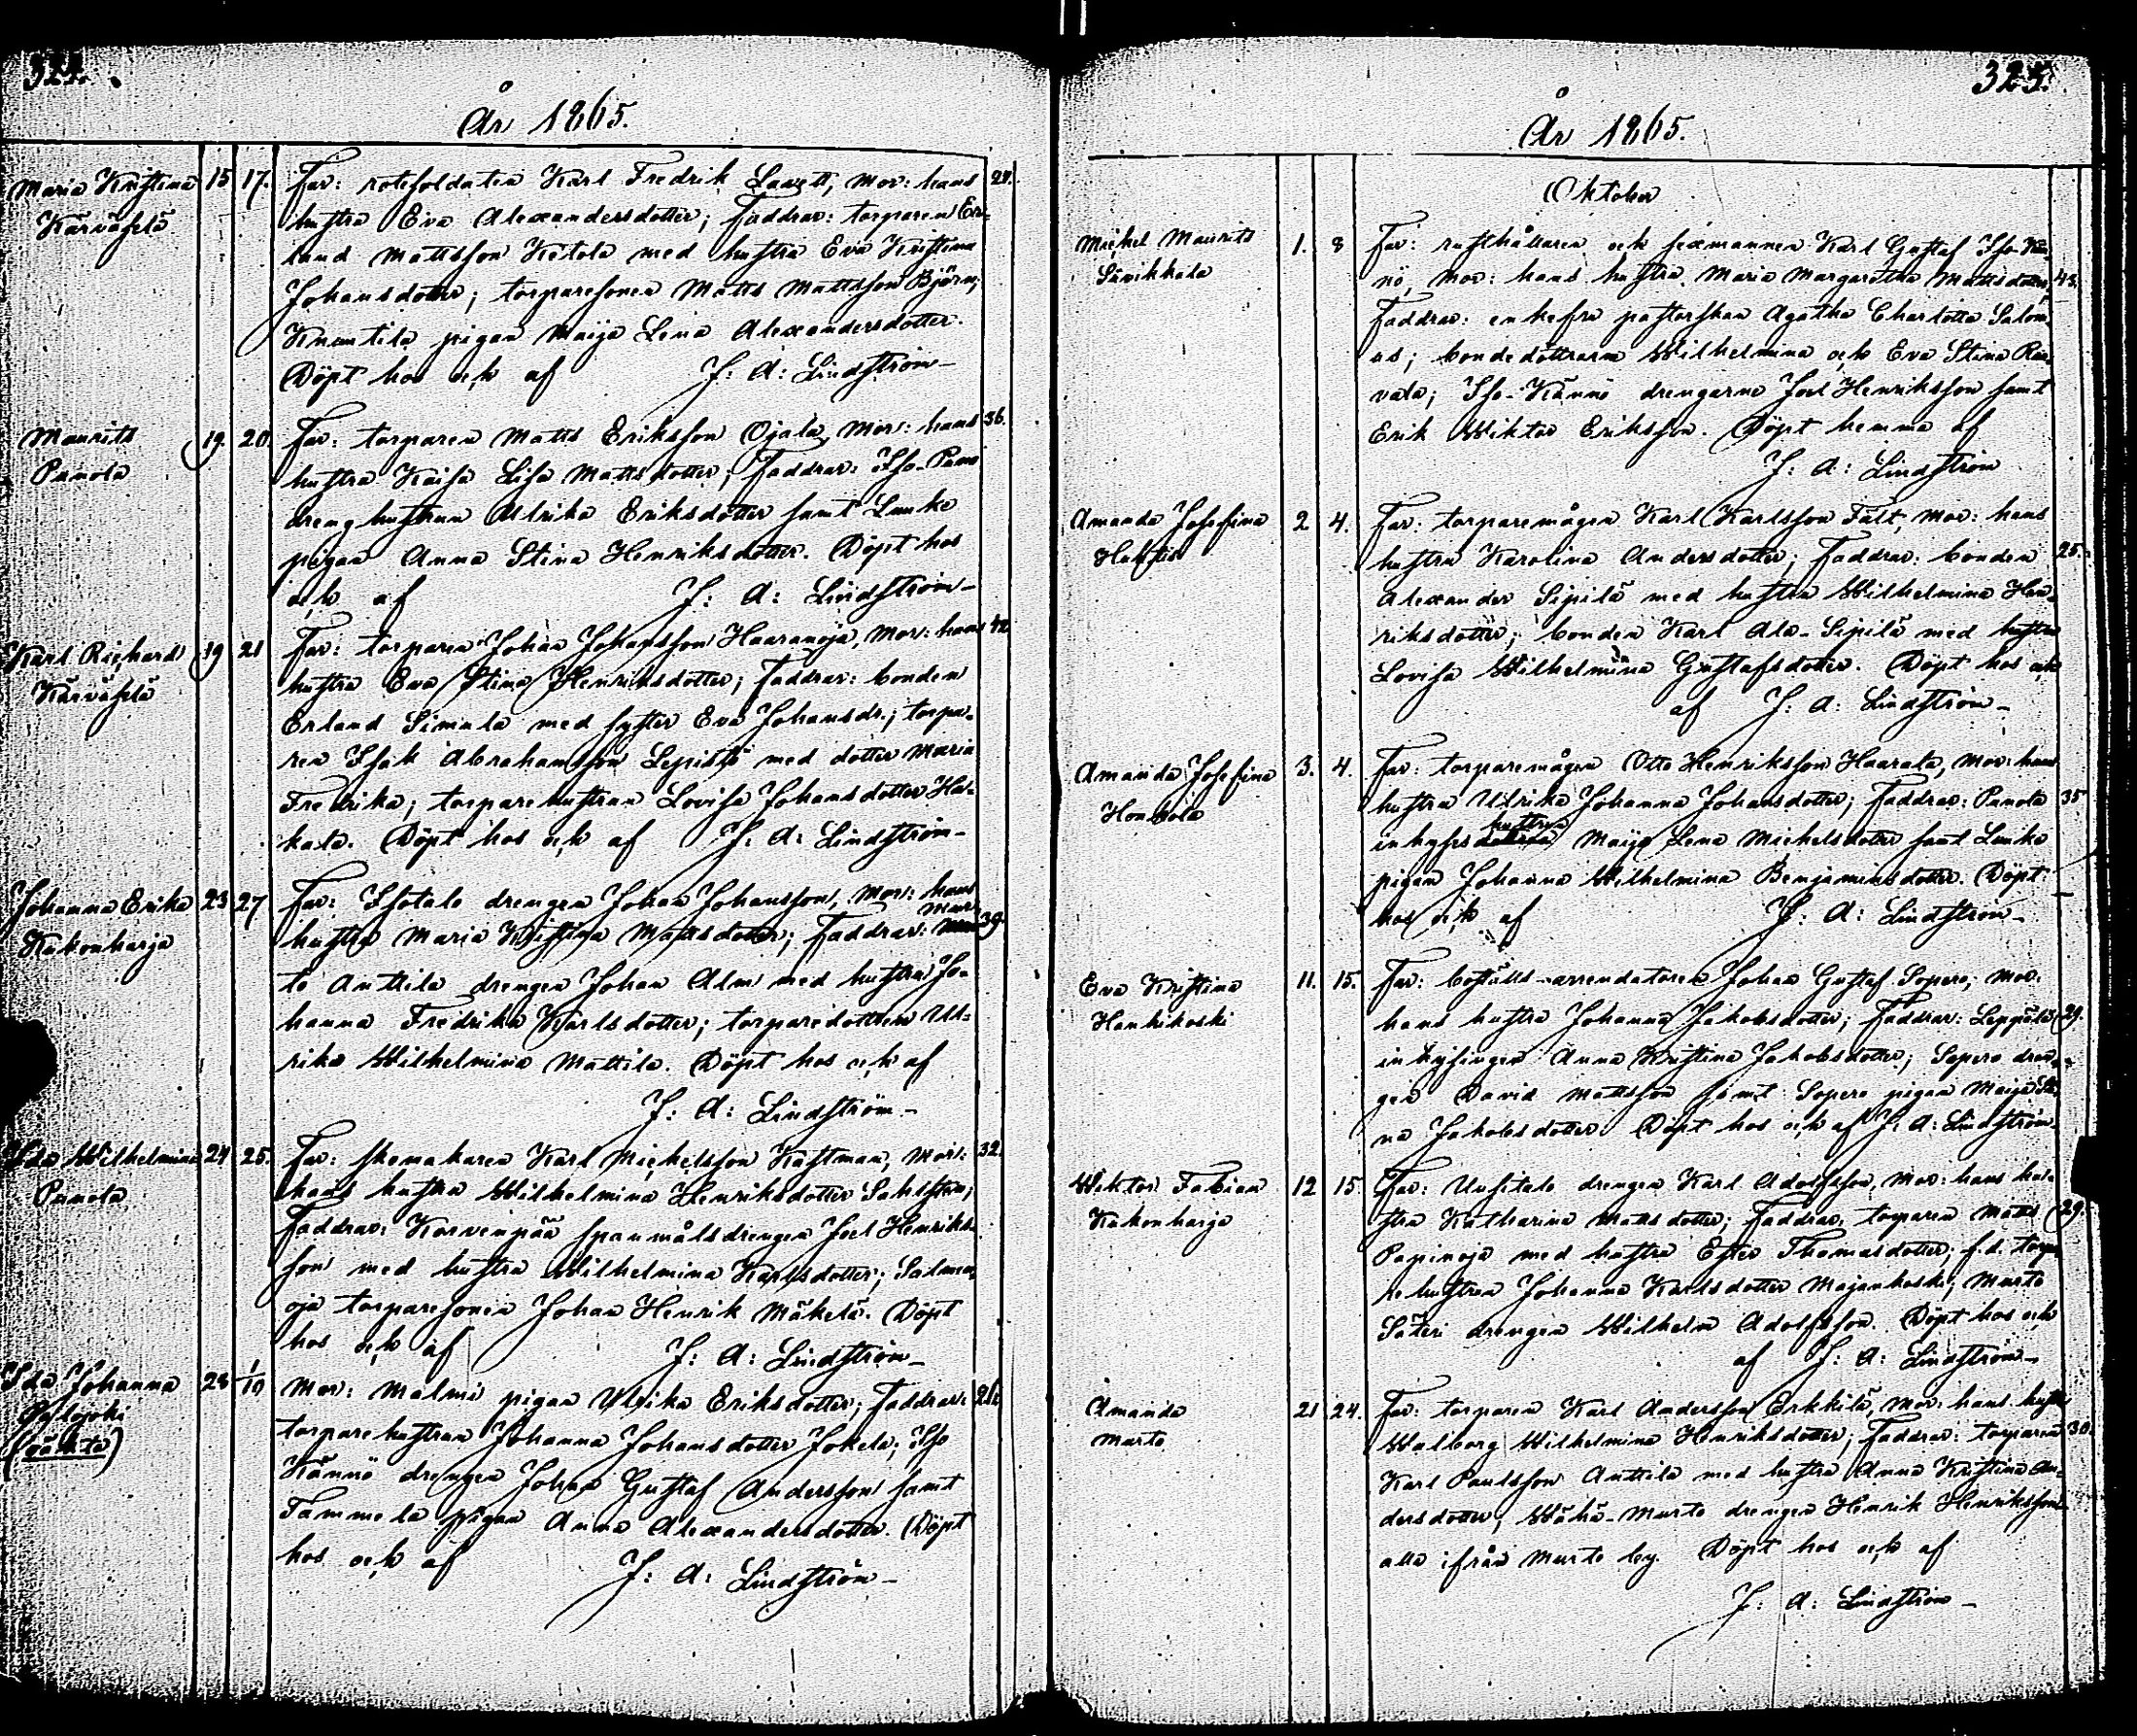 324.
År 1865.
Maria Kristina 15 17. Far: rotesoldaten Karl Fredrik Lawett, Mor: hans 24.
Kärväselä hustru Eva Alexandersdotter; Faddrar: torparen Er-
land Mattsson Ketola med hustru Eva Kristina
Johansdotter; torparesonen Matts Mattsson Björn;
Knuutila pigan Maija Lena Alexandersdotter.
Döpt hos och af J: A: Lindström
Maurits 19. 20. Far: torparen Matts Eriksson Ojala, Mor: hans 36.
Punola hustru Kaisa Lisa Mattsdotter; Faddrar: Iso-Pano
dreng hustrun Ulrika Eriksdotter samt Lauko
pigan Anna Stina Henriksdotter. Döpt hos
och af J: A: Lindström
Karl Richard 19 21 Far: torparen Johan Johansson Haaranoja, Mor: hans 42
Kärväselä hustru Eva Stina Henriksdotter; Faddrar: bonden
Erland Simula med syster Eva Johansdr.; torpa-
ren Isak Abrahamsson Lepistö med dotter Maria
Fredrika; torparehustrun Lovisa Johansdotter Ha-
kala. Döpt hos och af J: A: Lindström
Johanna Erika 23 27 Far: Isotalo drengen Johan Johansson, Mor: hans
Kukonharja hustru Maria Kristina Mattsdotter; Faddrar: Mur- 39.
to Anttila drengen Johan Alm med hustru Jo-
hanna Fredrika Karlsdotter; torparedottren Ul-
rika Wilhelmina Mattila. Döpt hos och af
J: A: Lindström
Ida Wilhelmina 24 25. Far: skomakaren Karl Michelsson Kastman, Mor: 32.
Punola hans hustru Wilhelmina Henriksdotter Sahlsten;
Faddrar: Korvenpää spanmålsdrengen Joel Henriks-
son med hustru Wilhelmina Karlsdotter; Salmen-
oja torparesonen Johan Henrik Mäkelä. Döpt
hos och af J: A: Lindström
Ida Johanna 28 1/10 Mor: Malmi pigan Ulrika Eriksdotter; Faddrar: 26.
Palojoki torparehustrun Johanna Johansdotter Jokela; Iso
(oäkta) Kännö drengen Johan Gustaf Andersson samt
Tammela pigan Anna Alexandersdotter. Döpt
hos och af J: A: Lindström
325.
År 1865.
Oktober
Michel Maurits 1. 8 Far: rusthållaren och sexmannen Karl Gustaf Iso-Kän-
nö, Mor: hans hustru Maria Margaretha Mattsdotter, 43.
Faddrar: enkefru pastorskan Agatha Charlotta Salon-
us; bondedöttrarna Wilhelmina och Eva Stina
vala; Iso-Kännö drengarne Joel Henriksson samt
Erik Wiktor Eriksson. Döpt hemma af
J: A: Lindström
Amanda Josefina 2 4. Far: torparemågen Karl Karlsson Fält, Mor: hans
hustru Karolina Andersdotter; Faddrar: bonden 25.
Alexander Sipilä med hustru Wilhelmina Hen-
riksdotter; bonden Karl Ala-Sipilä med hustru
Lovisa Wilhelmina Gustafsdotter. Döpt hos och
af J: A: Lindström
Amanda Josefina 3. 4. Far: torparemågen Otto Henriksson Haarala, Mor: hans
Honkola hustru Ulrika Johanna Johansdotter; Faddrar: Punola 35
inhyses hustrun Maija Lena Michelsdotter samt Lauko
pigan Johanna Wilhelmina Benjaminsdotter. Döpt
hos och af J: A: Lindström
Eva Kristina 11. 15. Far: boställs-arrendatoren Johan Gustaf Sopero, Mor:
Hankikoski hans hustru Johanna Jakobsdotter; Faddrar: Leppälä 29.
inhysingen Anna Kristina Jakobsdotter; Sopero dren-
gen David Mattsson samt Sopero pigan Maija Le-
na Jakobsdotter. Döpt hos och af J: A: Lindström
Wiktor Fabian 12 15. Far: Uusitalo drengen Karl Adolfsson, Mor: hans hu-
Kukonharja stru Katharina Mattsdotter; Faddrar: torparen Matts 29.
Papinoja med hustru Ester Thomasdotter; f.d. torpa-
rehustrun Johanna Karlsdotter Majankoski; Murto
Säteri drengen Wilhelm Adolfsson. Döpt hos och
af J: A: Lindström
Amanda 21 24. Far: torparen Karl Andersson Erkkilä, Mor: hans hustru
Murto Walborg Wilhelmina Henriksdotter; Faddrar: torparen 30.
Karl Paulsson Anttila med hustru Anna Kristina An-
dersdotter; Wähä-Murto drengen Henrik Henriksson
alla ifrån Murto by. Döpt hos och af
J: A: Lindström